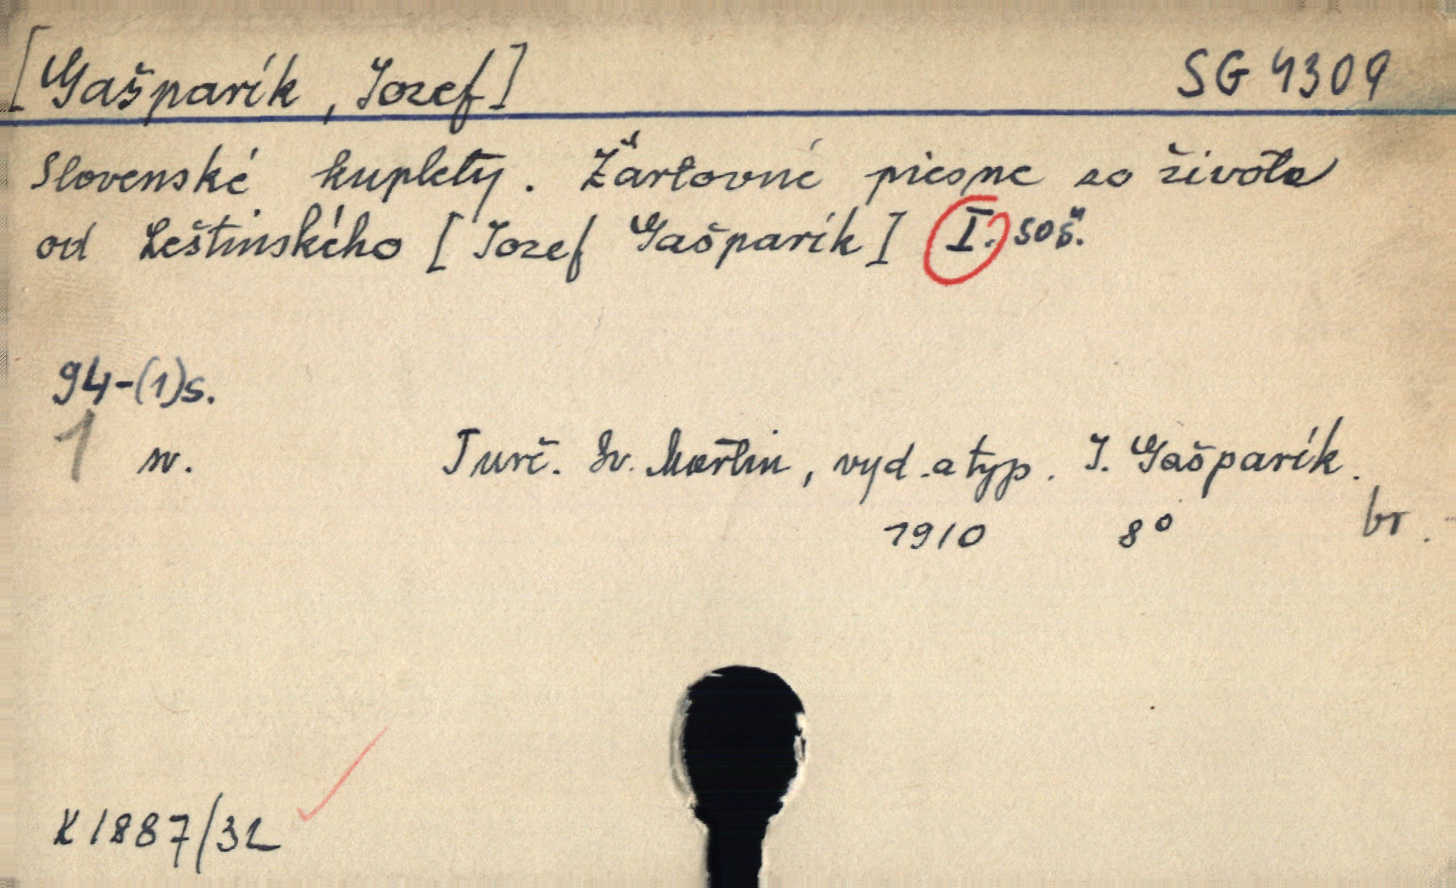 [Gašparík, Jozef] SG 4309
Slovenské kuplety. Žartovné piesne zo života
od Leštinského [Jozef Gašparík] I. soš.
94-(1)s.
1 n. Turč. Sv. Martin, vyd. a typ. J. Gašparík.
1910 8° br.
K 1887/32